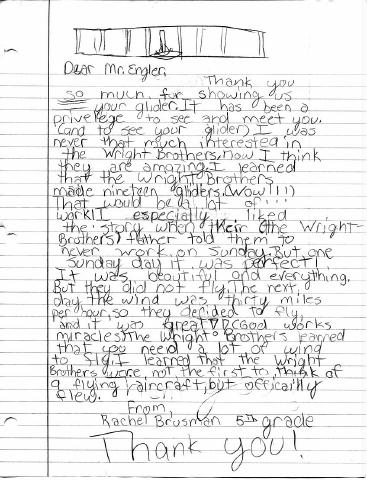 Dear Mr. Engler,
Thank you
so much for showing us
your glider. It has been a
privelege to see and meet you.
(and to see your glider) I was
never that much interested in
the Wright Brothers, now I think
they are amazing. I learned
that the Wright Brothers
made nineteen gliders. (Wow!!!)
That would be a lot of...
work!I especially liked
the story when their (the Wright
Brothers) father told them to
never work on Sunday. But one
Sunday day it was perfect!
It was beautiful and everything.
But they did not fly. The next,
day the wind was thirty miles
per hour, so they decided to fly,
and it was great God works
miracles. The Wright Brothers learned
that you need a lot of wind
to fly. I learned that the Wright
Brothers were, not the first to think of
a flying aircraft, but offically
flew.
From,
Rachel Brusman 5th grade
Thank you!